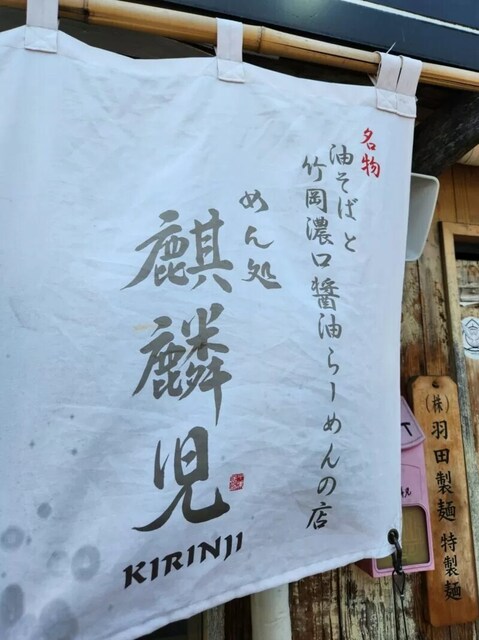 名物
油そばと
竹岡濃口醤油らーめんの店
めん処
麒麟児
KIRINJI
(株)羽田製麺 特製麺